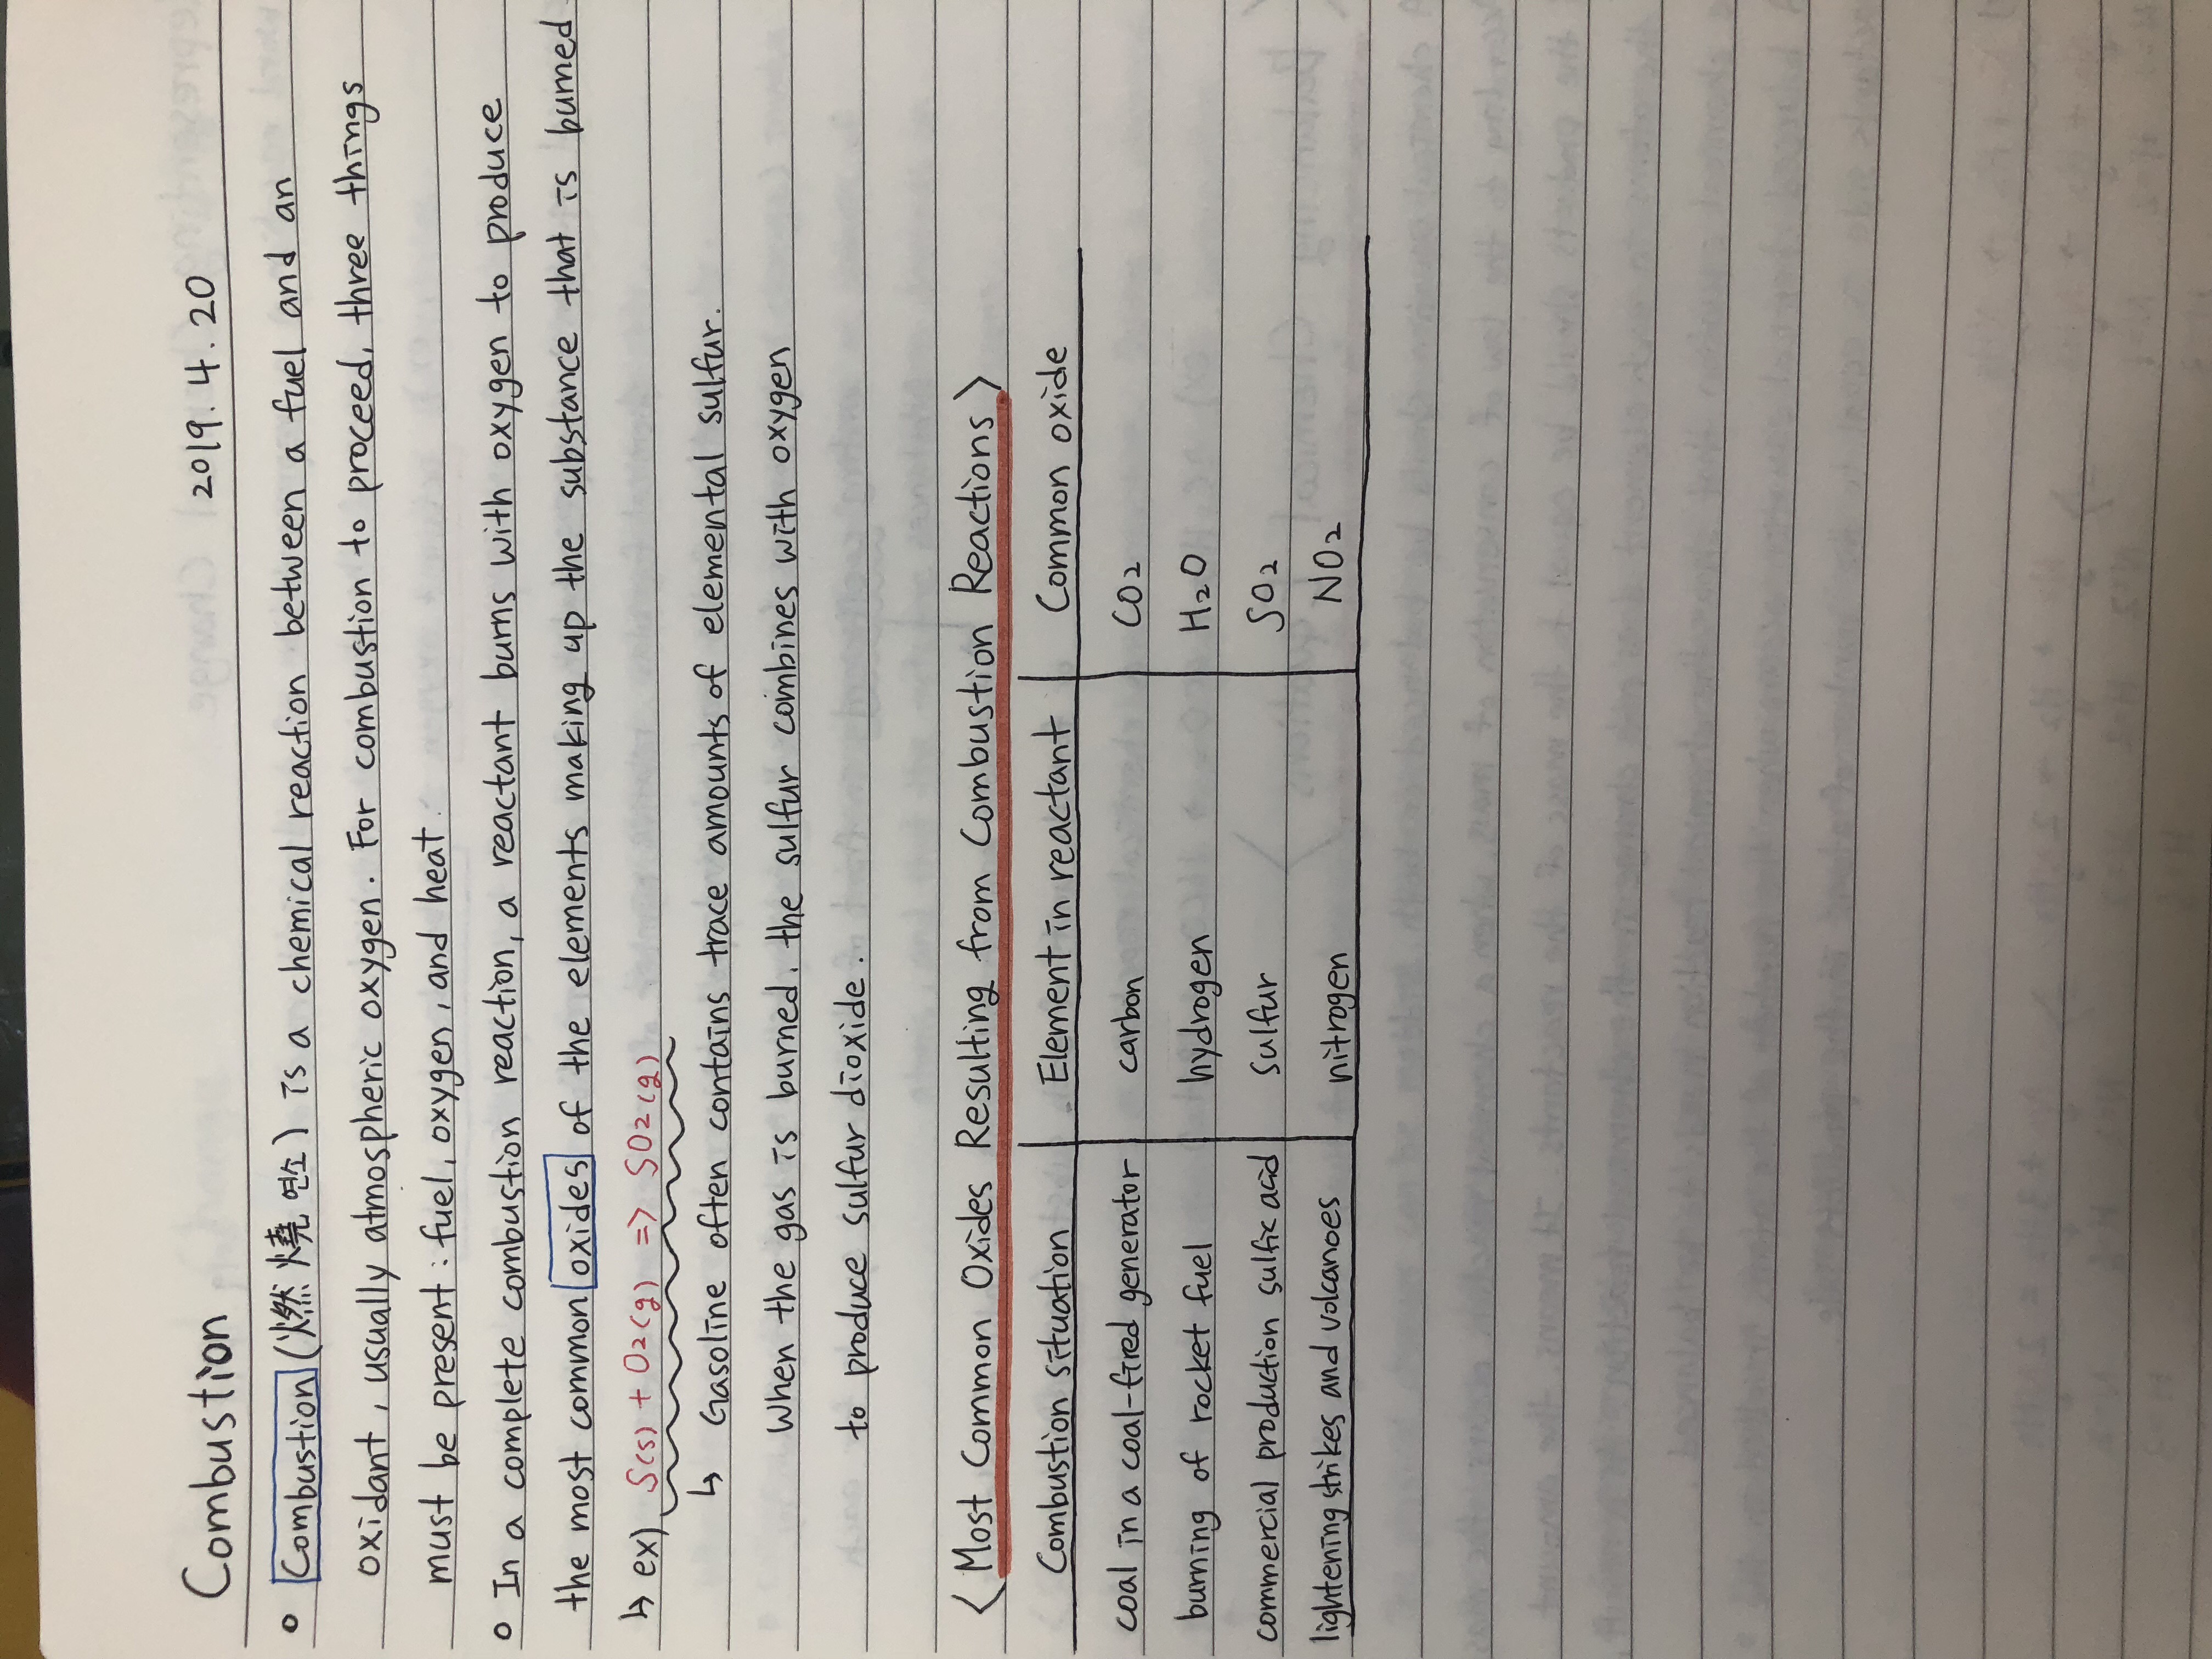 Combustion 2019.4.20
○ Combustion (燃燒 연소) is a chemical reaction between a fuel and an
oxidant, usually atmospheric oxygen. For combustion to proceed, three things
must be present : fuel, oxygen, and heat.
○ In a complete combustion reaction, a reactant burns with oxygen to produce
the most common oxides of the elements making up the substance that is burned
↳ ex) S(s) + O2(g) => SO2(g)
↳ Gasoline often contains trace amounts of elemental sulfur.
When the gas is burned, the sulfur combines with oxygen
to produce sulfur dioxide.
<Most Common Oxides Resulting from Combustion Reactions>
Combustion situation Element in reactant Common oxide
coal in a coal-fired generator carbon CO2
burning of rocket fuel hydrogen H2O
commercial production sulfix acid sulfur SO2
lightening strikes and volcanoes nitrogen NO2